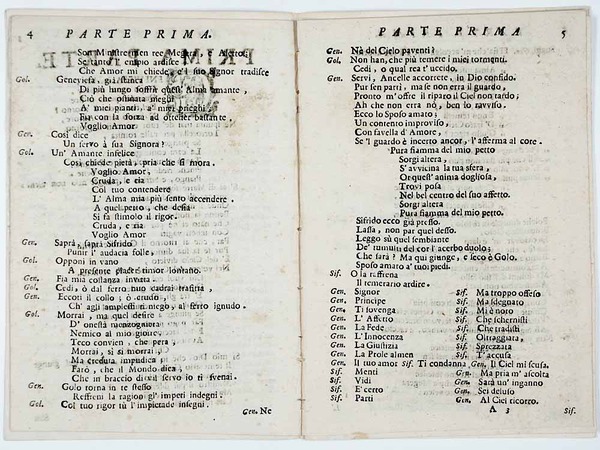 4 PARTE PRIMA.
Son Ministre in ree Megera, e Aletto,
Se tanto l'empio ardisce
Che Amor mi chiede, e'l suo Signor tradisce
Gol. Geneviefa, già stanca
Di più lungo soffrir quest' Alma amante,
Ciò che ostinata neghi
A' miei pianti, a' miei prieghi,
Fia con la forza ad ottener bastante.
Voglio Amor
Gen. Così dice
Un servo à sua Signora?
Gol. Un' Amante infelice
Così chiede pietà, pria che si mora.
Voglio Amor,
Cruda, e ria
Col tuo contendere
L' Alma mia più sento accendere.
A quel petto, che desia
Si fa stimolo il rigor.
Cruda, e ria
Voglio Amor
Gen. Saprà, saprà Sifrido
Punir l' audacia folle,
Gol. Opponi in vano
A presente piacer timor lontano.
Gen. Fia mia costanza invitta.
Gol. Cedi, ò dal ferro tuo cadrai trafitta,
Gen. Eccoti il collo; ò crudo,
Ch' agli amplessi ti niego, al ferro ignudo.
Gol. Morrai, ma quel desire
D' onestà menzogniera
Nemico al mio gioire,
Teco convien, che pera,
Morrai, sì sì morrai,
Ma creduta impudica
Farò, che il Mondo dica,
Che in braccio di vil servo io ti svenai.
Gen. Golo torna in te stesso
Raffreni la ragion gl' impeti indegni.
Gol. Col tuo rigor tù l'impietade insegni.
Gen. Ne
PARTE PRIMA 5
Gen. Nè del Cielo paventi?
Gol. Non han, che più temere i miei tormenti.
Cedi, o qual rea t'uccido.
Gen. Servi, Ancelle accorrete, in Dio confido.
Pur sen parti, ma se non erra il guardo,
Pronto m' offre il riparo il Ciel non tardo;
Ah che non erra nò, ben lo ravviso,
Ecco lo Sposo amato;
Un contento improviso,
Con favella d' Amore,
Se 'l guardo è incerto ancor, l' afferma al core.
Pura fiamma del mio petto
Sorgi altera,
S' avvicina la tua sfera,
Or quest' anima dogliosa,
Trovi posa
Nel bel centro del suo affetto.
Sorgi altera
Pura fiamma del mio petto.
Sifrido ecco già presso.
Lassa, non par quel desso.
Leggo sù quel sembiante
De' tumulti del cor l' acerbo duolo;
Che sarà? Ma quì giunge, e seco è Golo.
Sposo amato a' tuoi piedi.
Sif. O là raffrena
Il temerario ardire.
Gen. Signor Sif. Ma troppo offeso
Gen. Principe Sif. Ma sdegnato
Gen. Ti sovenga Sif. Mi è noto
Gen. L' Affetto Sif. Che schernisti
Gen. La Fede Sif. Che tradisti
Gen. L' Innocenza Sif. Oltraggiata,
Gen. La Giustizia Sif. Sprezzata
Gen. La Prole almen Sif. T' accusa
Gen. Il tuo amor Sif. Ti condanna Gen. Il Ciel mi scusa.
Sif. Menti Gen. Ma pria m' ascolta
Sif. Vidi Gen. Sarà un' inganno
Sif. E' certo Gen. Sei deluso
Sif. Parti Gen. Al Ciel ricorro.
A 3 Sif.